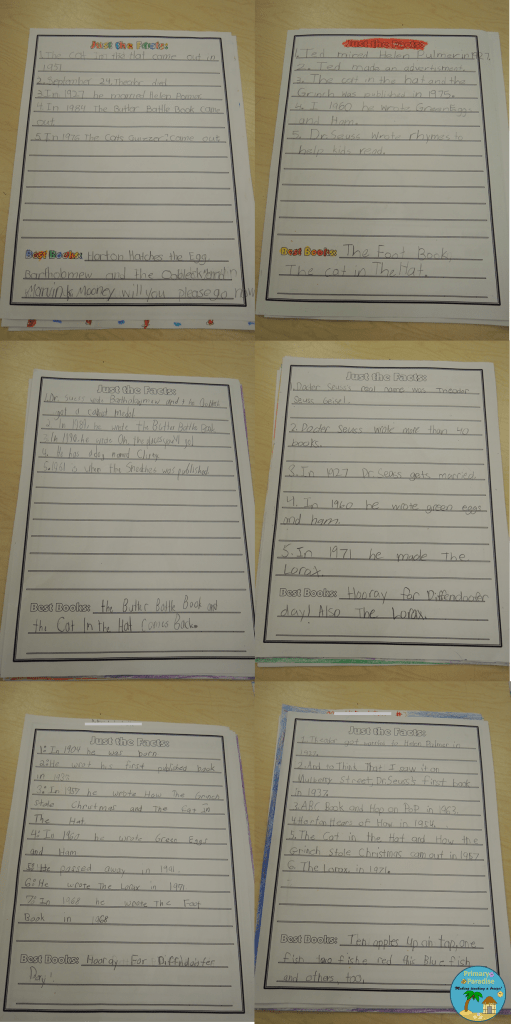 Just the Facts:
1. The Cat in the Hat came out in
1957
2. September 24 Theodor died
3. In 1927 he married Helen Palmer
4. In 1984 The Butter Battle Book came
out
5. In 1976 The Cats Quizzer came out
Best Books: Horton Hatches the Egg
Bartholomew and the Oobleck
Marvin K Mooney will you please go now
1. Ted Helen Palmer in 1927
2. Ted made an
3. The cat in the hat and the
Grinch was published in
4. I 1960 he wrote Green Eggs
and Ham.
5. Dr. Seuss wrote rhymes to
help kids read.
Best Books: The Foot Book,
The cat in The Hat.
Just the Facts:
1. Dr. Seuss wrote Bartholomew and the
got a
2. In 1984 he wrote the Butter Battle Book
3. In 1990, he wrote Oh, the places you'll go!
4. He has a dog named
5. 1961 is when the Sneetches was published
Best Books: the Butter Battle Book and
the Cat In the Hat Comes Back.
Just the Facts:
1. Doctor Seuss real name was
Seuss Geisel.
2. Doctor Seuss wrote more than 40
books.
3. In 1927 Dr. Seuss gets married.
4. In 1960 he wrote green eggs
and ham.
5. In 1971 he made The
Lorax
Best Books: Hooray for Diffendoofer
day! Also The Lorax.
Just the Facts:
1. In 1904 he was born
2. He wrote his first published book
in 1937
3. In 1957 he wrote How The Grinch
Stole Christmas and The Cat in
The Hat
4. In 1960 he wrote Green Eggs
and Ham
5. He passed away in 1991
6. He wrote The Lorax in 1971
7. In 1968 he wrote The Foot
Book in 1968
Best Books: Hooray For Diffendoofer
Day!
Just the Facts:
1. Theodor got married to Helen Palmer in
2. And to Think That I saw it on
Mulberry Street: Dr. Seuss's first book
in 1937
3. ABC Book and Hop on Pop in 1963
4. Horton Hears a Who in 1954.
5. The Cat in the Hat and How the
Grinch Stole Christmas cam out in 1957.
6. The Lorax in 1971.
Best Books: Ten apples Up on top, one
fish two fish red fish Blue fish
and others, too,
Primary Paradise